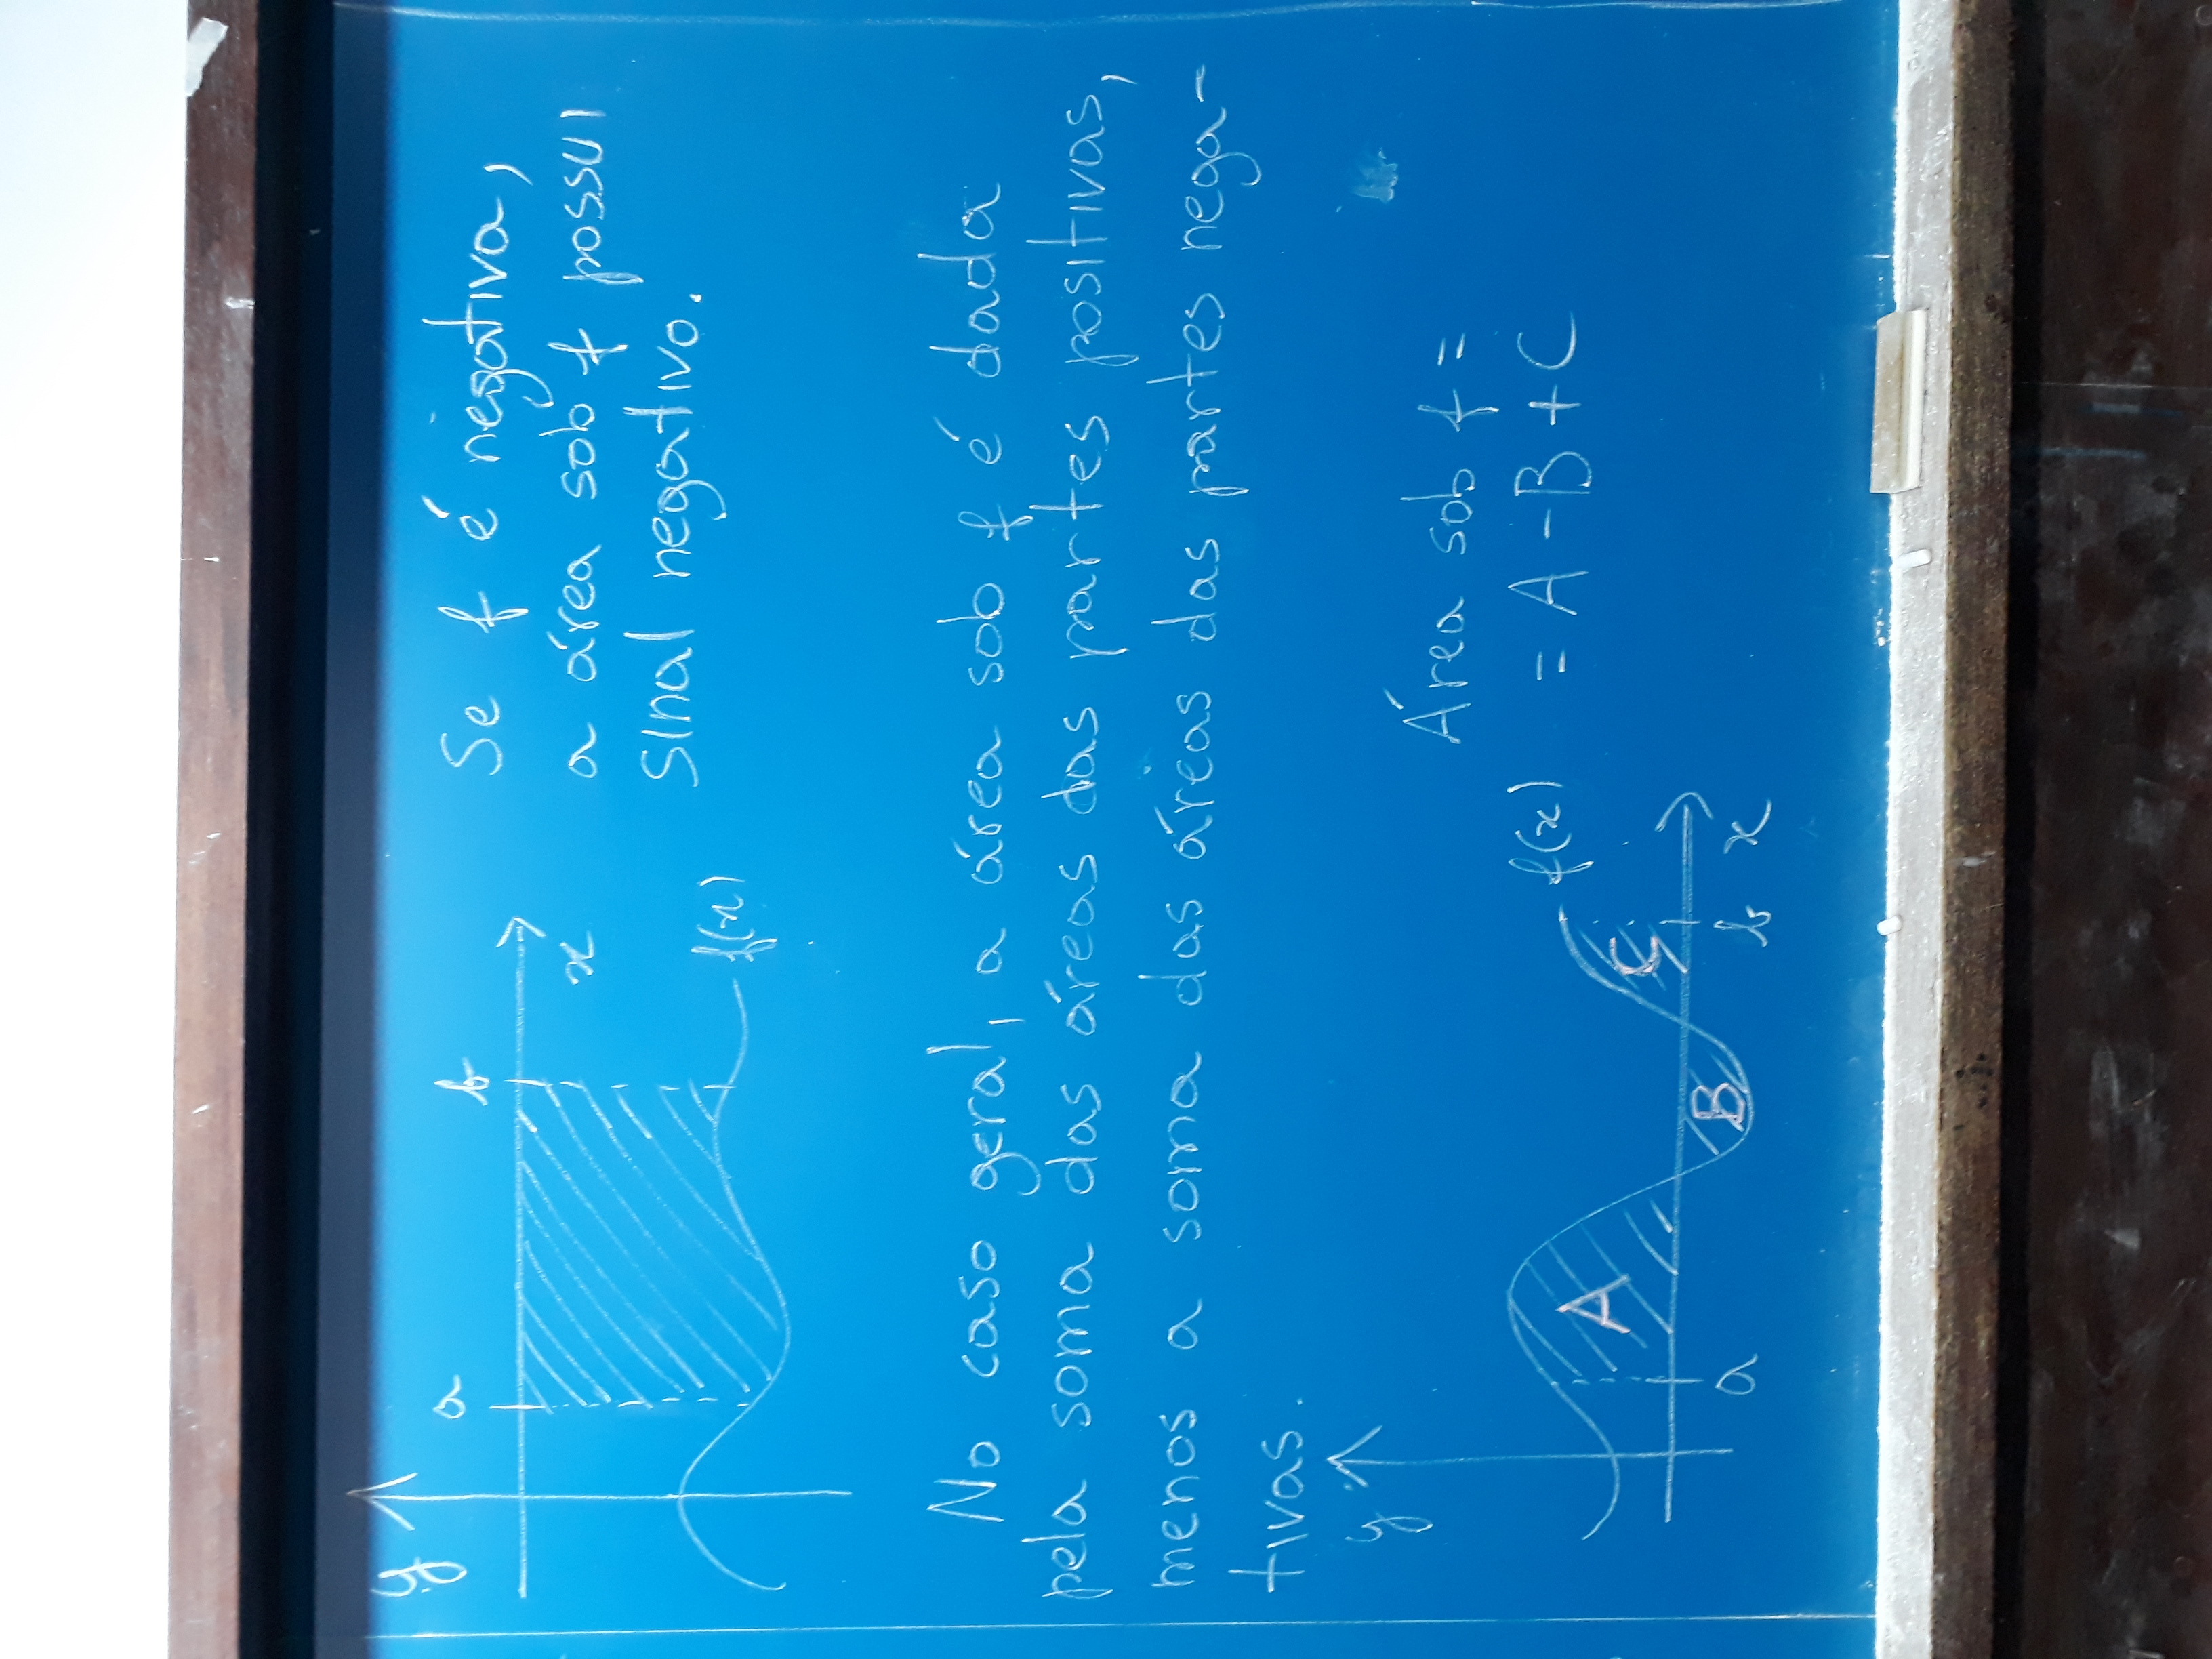 y
a
b
x
f(x)
Se f é negativa,
a área sob f possui
sinal negativo.
No caso geral, a área sob f é dada
pela soma das áreas das partes positivas,
menos a soma das áreas das partes nega-
tivas.
y
A
B
C
f(x)
a
b
x
Área sob f =
= A - B + C